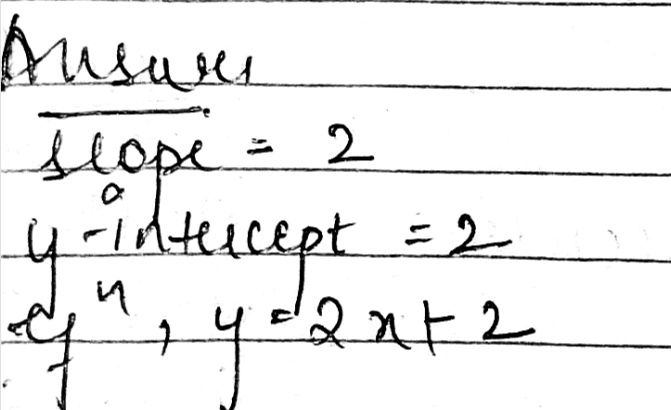 Answer
slope = 2
y-intercept = 2
eqⁿ, y = 2x + 2